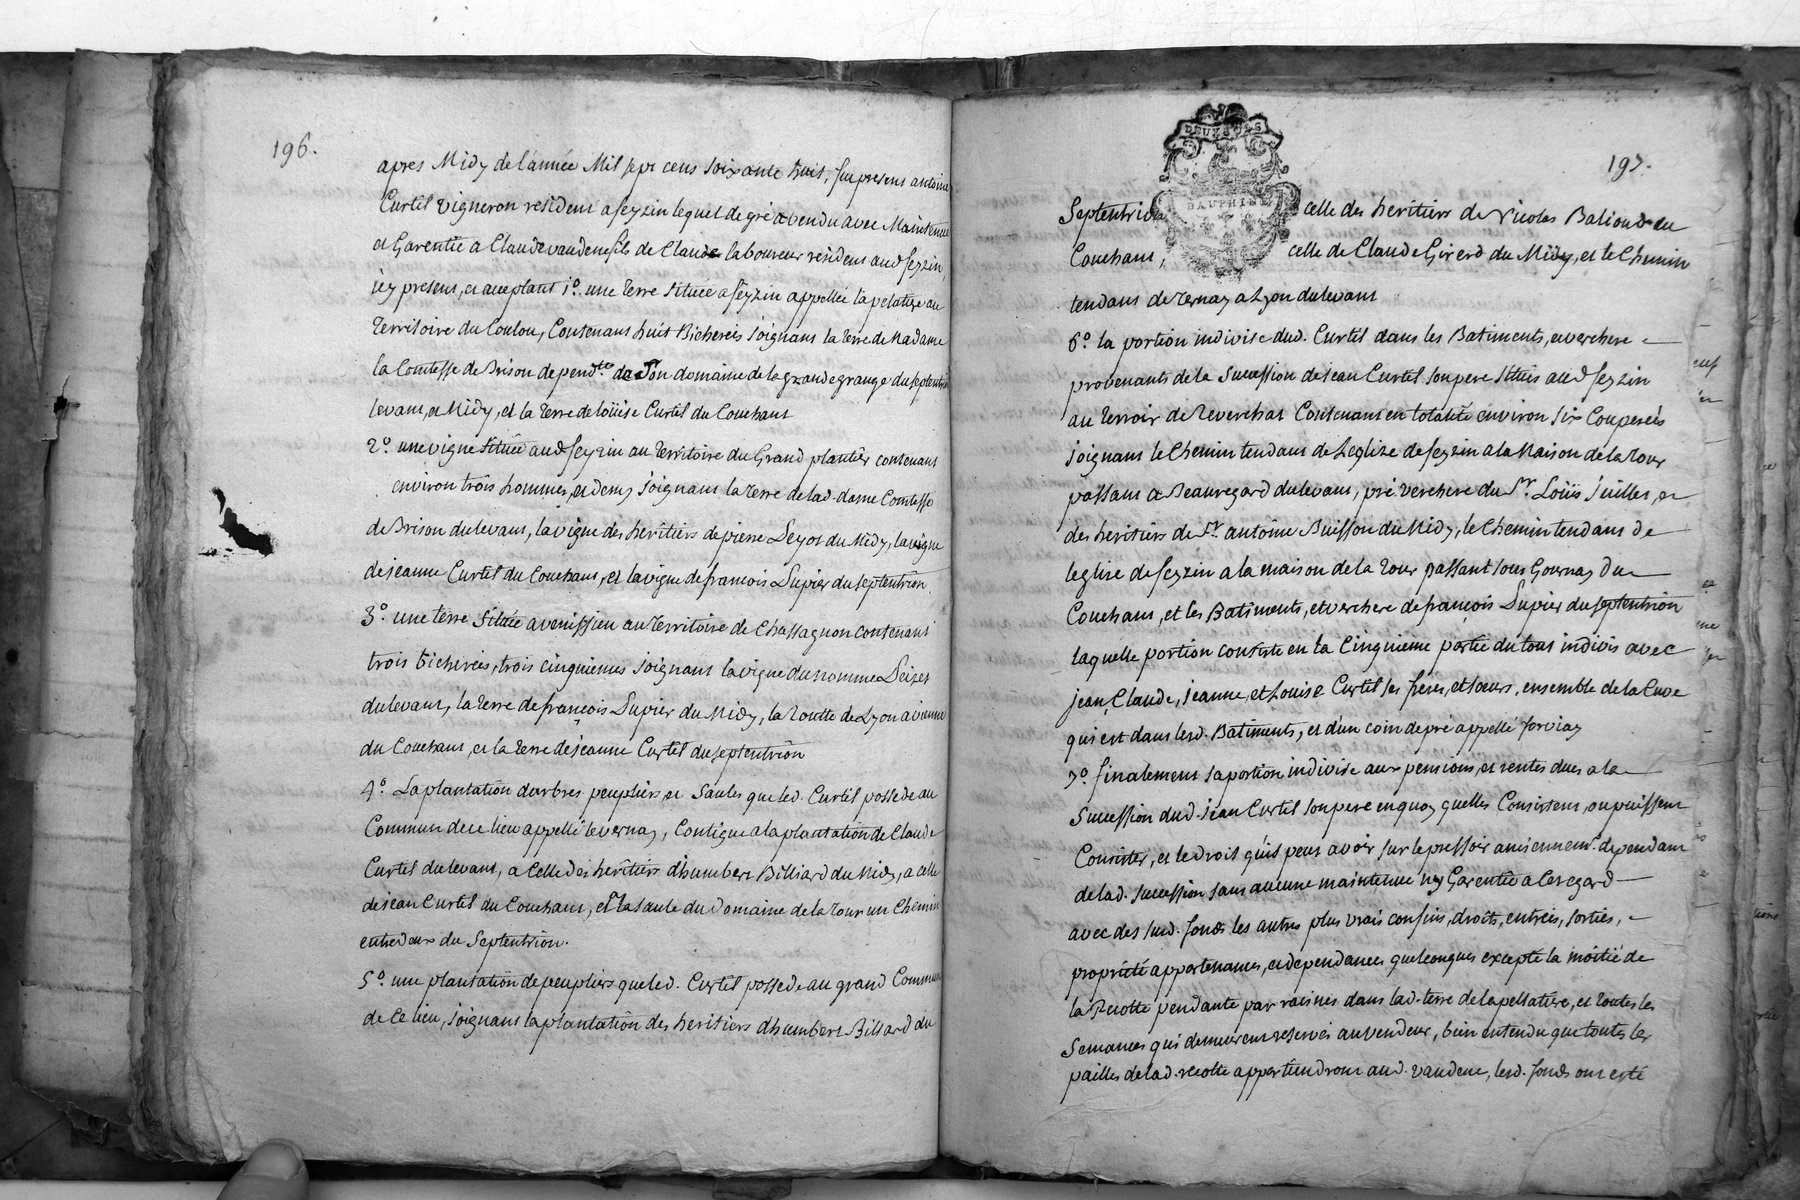 196.
apres Midy de l'année Mil sept cens soixante huit, fut present antoine
Curtil vigneron resident a seyzin lequel de gré a vendu avec Maintenue
et Garentie a Claude vaudene fils de Claude laboureur resident aud seyzin
icy present, et acceptant 1º. une terre située a seyzin appellée la pelatiere au
territoire du Coulou, Contenant huit Bicherées joignant la terre de Madame
la Comtesse de Brison dependtes de Son domaine de la grande grange du septentrion
levant, et Midy, et la terre de loüise Curtil du Couchant
2º. une vigne située aud seyzin au territoire du Grand plantier contenant
environ trois hommes, et demy joignant la terre de lad. dame Comtesse
de Brison du levant, la vigne des heritiers de pierre Leyot du Midy, la vigne
de jeanne Curtil du Couchant, et la vigne de francois Dupier du septentrion
3º. une terre située a venissieu au territoire de Chassagnon contenant
trois bicherées, trois cinquiemes joignant la vigne du nommé
du levant, la terre de françois Dupier du Midy, la Routte de Lyon a vienne
du Couchant, et la terre de jeanne Curtil du septentrion
4º. La plantation d'arbres peupliers, et saules que led. Curtil possede au
Commun de ce lieu appellé levernay, Contigue a la plantation de Claude
Curtil du levant, a Celle des heritiers d'humbert Billiard du Midy, a celle
de jean Curtil du Couchant, et la saulé du Domaine de la tour un Chemin
entredeux du Septentrion.
5º. une plantation de peupliers que led. Curtil possede au grand Commun
de Ce lieu, joignant la plantation des heritiers d'humbert Billiard du
197.
DEUX SOLS
DAUPHINÉ
Septentrion celle des heritiers de Nicolas Baliond du
Couchant, celle de Claude Girerd du Midy, et le Chemin
tendant de ternay a Lyon du levant
6º. la portion indivise dud. Curtil dans les Batiments, et verchere
provenants de la succession de jean Curtil son pere situés aud seyzin
au terroir de Reverchat Contenant en totalité environ six Couperées
joignant le Chemin tendant de L'eglize de seyzin a la Maison de la tour
passant a Beauregard du levant, pré verchere du Sr. Loüis juillet, et
des heritiers de Sr. antoine Buisson du Midy, le Chemin tendant de
leglise de seyzin a la maison de la tour passant sous Gournay du
Couchant, et les Batiments, et verchere de françois Dupier du septentrion
laquelle portion consiste en la Cinquieme partie du tout indivis avec
jean, Claude, jeanne, et Louise Curtil ses freres, et sœurs, ensemble de la Cuve
qui est dans lesd. Batiments, et d'un coin de pré appellé
7º. finalement sa portion indivise aux pensions, et rentes dues a la
succession dud. jean Curtil son pere en quoy quelles Consistent, ou puissent
Consister, et le droit qu'il peut avoir sur le pressoir anciennemt. dependant
de lad. succession sans aucune maintenue ny Garentie a Cet egard
avec des susd. fonds les autres plus vrais confins, droits, entrées, sorties,
propriété appartenances, et dependances quelconques excepté la moitié de
la Recolte pendante par racines dans lad. terre de la pellatiere, et toutes les
Semances qui demeurent reservés au vendeur, bien entendu que toutes les
pailles de lad. recolte appartiendront aud. vaudene, lesd. fonds ont esté